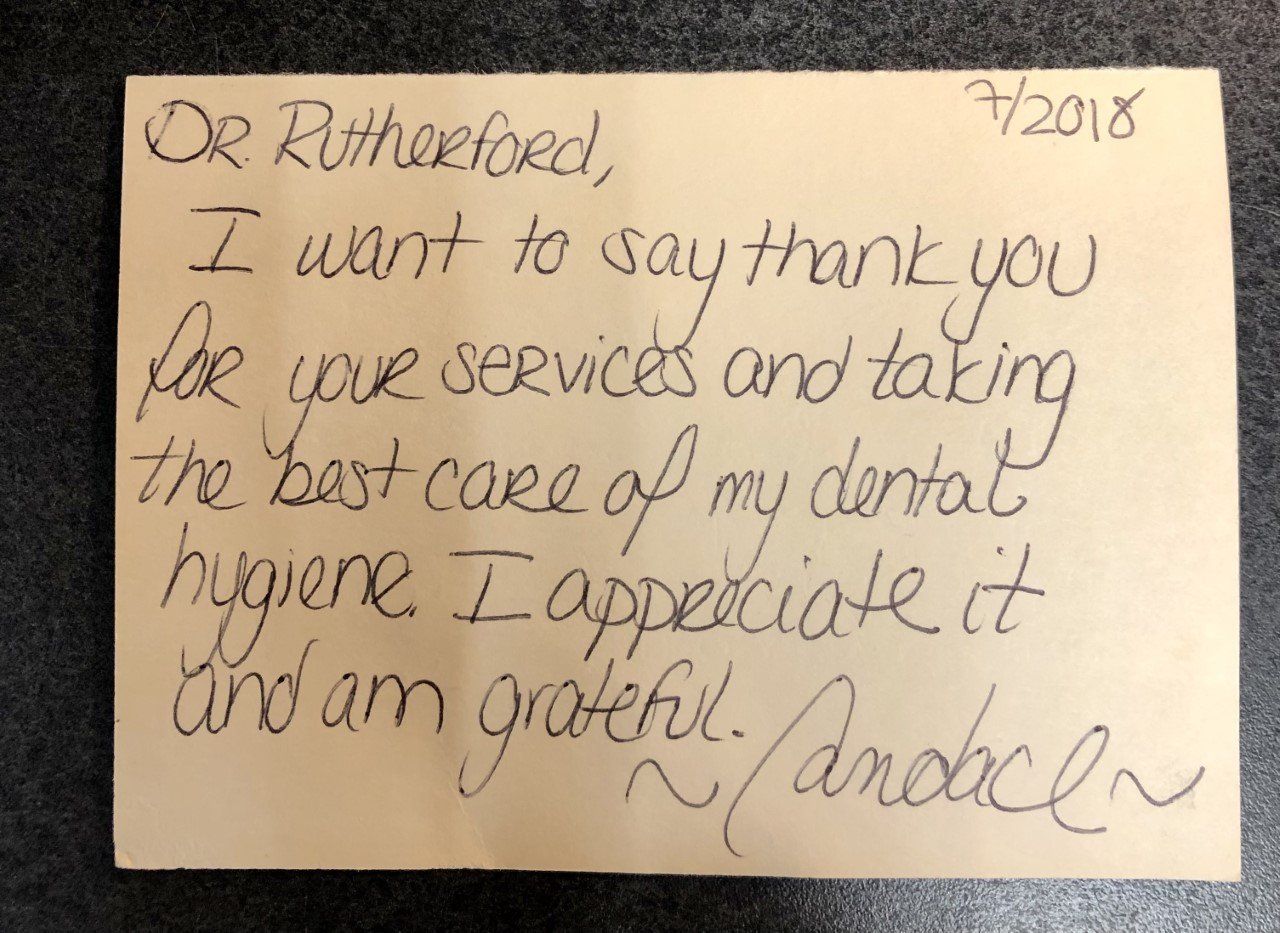 7/2018
Dr. Rutherford,
I want to say thank you
for your services and taking
the best care of my dental
hygiene. I appreciate it
and am grateful.
~Candace~